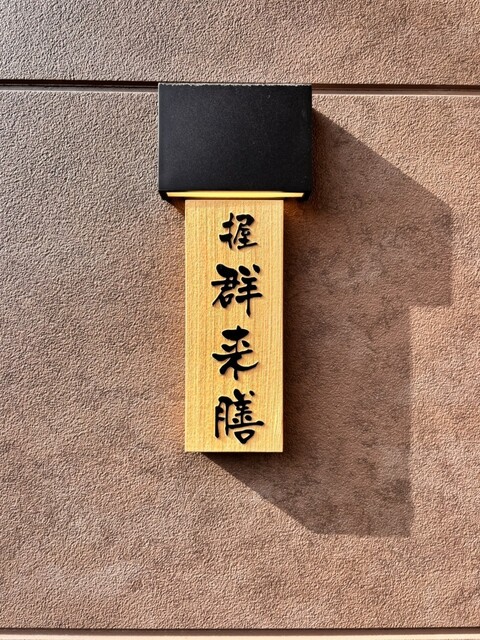 握群来膳